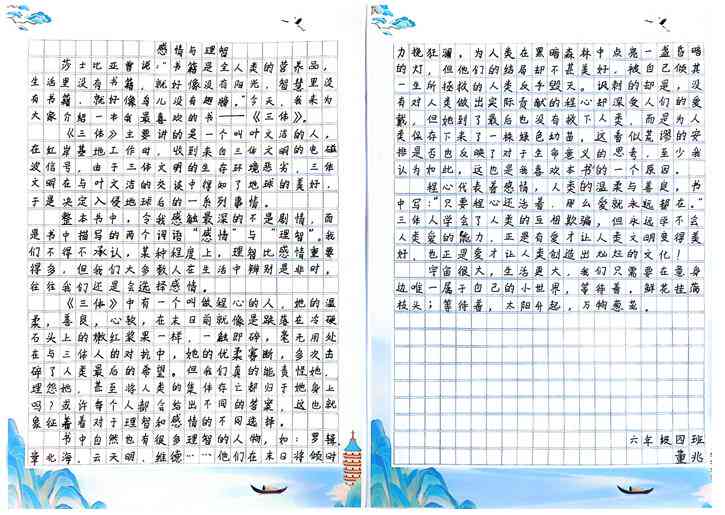 感情与理智
莎士比亚曾说："书籍是全人类的营养品，
生活里没有书籍，就好像没有阳光，智慧里没
有书籍，就好像鸟儿没有翅膀。"今天，我来为
大家介绍一本我最喜欢的书——《三体》。
《三体》主要讲的是一个叫叶文洁的人，
在红岸基地工作时，收到来自三体文明的电磁
波信号，由于三体文明的生存环境恶劣，三体
文明在与叶文洁的交谈中得知了地球的美好，
于是决定入侵地球后的一系列事情。
整本书中，令我感触最深的不是剧情，而
是书中描写的两个词语"感情"与"理智"。我
们不得不承认，某种程度上，理智比感情重要
得多，但我们大多数人在生活中辨别是非时，
往往我们还是会选择感情。
《三体》中有一个叫做程心的人，她的温
柔，善良，心软，在末日前就像是跌落在冷硬
石头上的嫩红浆果一样，一触即碎，毫无用处
在与三体人的对抗中，她的优柔寡断，多次击
碎了人类最后的希望。但我们真的能责怪她，
埋怨她，甚至将人类的集体存亡都归于她身上
吗？或许每个人都会给出不同的答案，这也就
象征着着对于理智和感情的不同选择。
书中自然也有很多理智的人物，如：罗辑，
章北海，云天明，维德……他们在末日将倾时
力挽狂澜，为人类在黑暗森林中点亮一盏昏暗
的灯，但他们的结局却不甚美好，被自己倾其
一生所拯救的人类反手毁灭。讽刺的却是，没
有对人类做出实际贡献的程心却深受人们的爱
戴，但她到了最后也没有救下人类，而是为人
类保存下来了一株绿色幼苗，这看似荒谬的安
排是否也反映了对于生命意义的思考，至少我
认为如此，这也是我喜欢本书的一个原因。
程心代表着感情，人类的温柔与善良，书
中写："只要程心还活着，那么爱就永远望在。"
三体人学会了人类的互相欺骗，但永远学不会
人类爱的能力，正是有爱才让人类文明变得美
好，也正是爱才让人类创造出灿烂的文化！
宇宙很大，生活更大，我们只需要在意身
边唯一属于自己的小世界，等待着，鲜花挂满
枝头；等待着，太阳升起，万物葱茏。
六年级四班
董兆